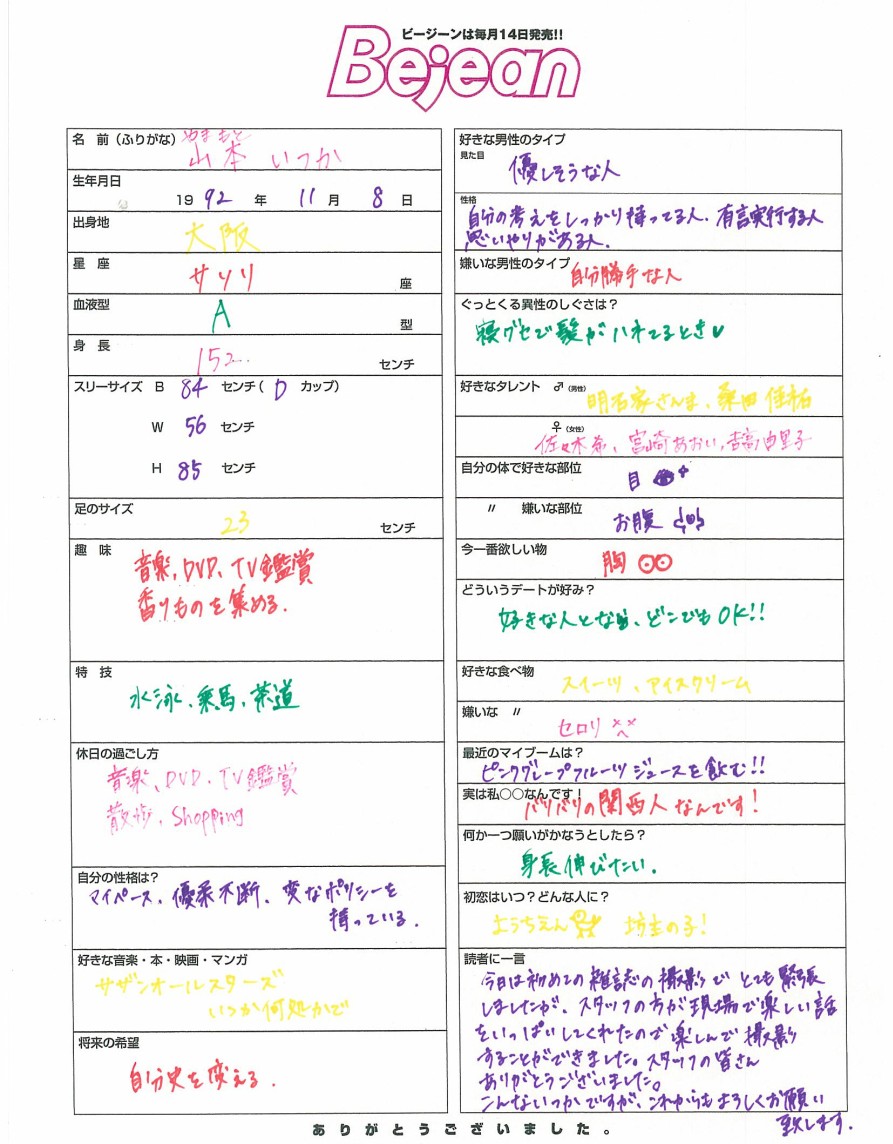 ビージーンは毎月14日発売!!
Bejean
名　前（ふりがな） やまもと
山本 いつか
生年月日
19 92 年 11 月 8 日
出身地
大阪
星　座
サソリ 座
血液型
A 型
身　長
152 センチ
スリーサイズ B 84 センチ( D カップ)
W 56 センチ
H 85 センチ
足のサイズ
23 センチ
趣　味
音楽、DVD、TV鑑賞
香りものを集める.
特　技
水泳、乗馬、茶道
休日の過ごし方
音楽、DVD、TV鑑賞
散歩、Shopping
自分の性格は？
マイペース、優柔不断、変なポリシーを
持っている.
好きな音楽・本・映画・マンガ
サザンオールスターズ
いつか何処かで
将来の希望
自分史を変える.
好きな男性のタイプ
見た目
優しそうな人
性格
自分の考えをしっかり持ってる人、有言実行する人
思いやりがある人.
嫌いな男性のタイプ
自分勝手な人
ぐっとくる異性のしぐさは？
寝グセで髪がハネてるとき♥
好きなタレント ♂（男性）
明石家さんま、桑田佳祐
♀（女性）
佐々木希、宮崎あおい、吉高由里子
自分の体で好きな部位
目
〃　嫌いな部位
お腹
今一番欲しい物
胸
どういうデートが好み？
好きな人となら、どこでもOK!!
好きな食べ物
スイーツ、アイスクリーム
嫌いな　〃
セロリ
最近のマイブームは？
ピンクグレープフルーツジュースを飲む!!
実は私〇〇なんです！
バリバリの関西人なんです！
何か一つ願いがかなうとしたら？
身長伸びたい.
初恋はいつ？どんな人に？
ようちえん 坊主の子！
読者に一言
今日は初めての雑誌の撮影でとても緊張
しましたが、スタッフの方が現場で楽しい話
をいっぱいしてくれたので楽しんで撮影
することができました。スタッフの皆さん
ありがとうございました。
こんないつかですが、これからもよろしくお願い
致します.
ありがとうございました。